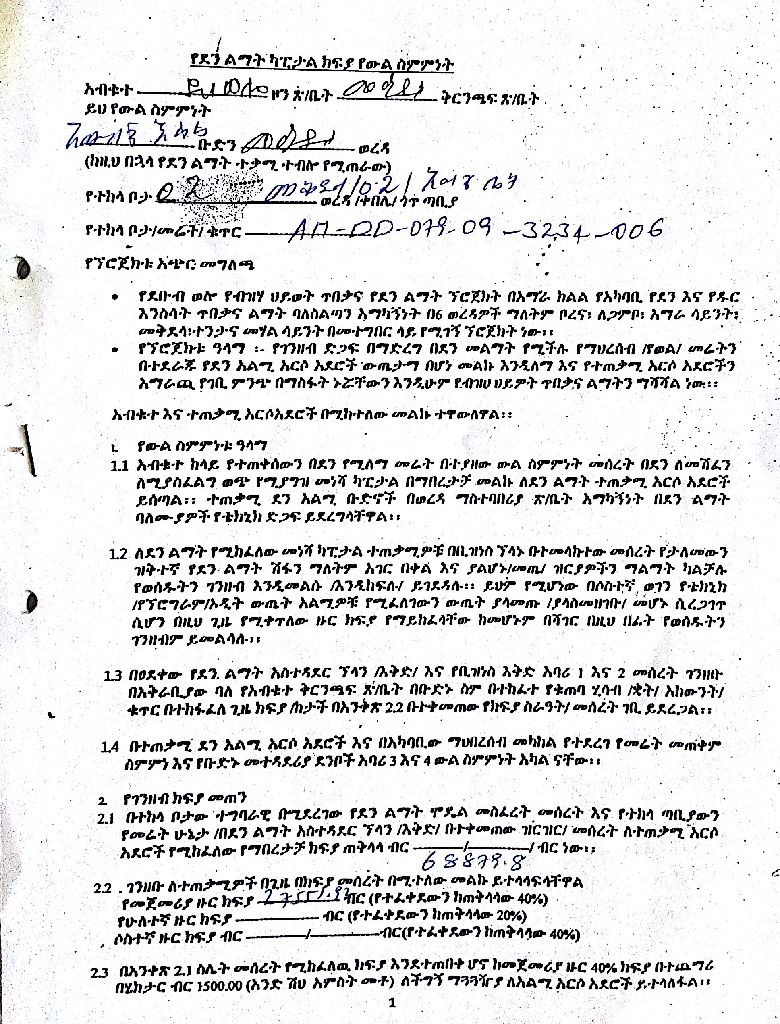 የደን ልማት ካፒታል ክፍያ የውል ስምምነት
አብቁተ ደ/ወሎ ዞን ጽ/ቤት መቅደላ ቅርንጫፍ ጽ/ቤት
ይህ የውል ስምምነት
ቡድን መቅደላ ወረዳ
(ከዚህ በኋላ የደን ልማት ተቃሚ ተብሎ የሚጠራው)
የተከላ ቦታ 02 መቅደላ/02/ ወረዳ /ቀበሌ/ ጎጥ ጣቢያ
የተከላ ቦታ/መሬት/ ቁጥር AM-DD-079-09-3234-006
የፕሮጀክቱ አጭር መግለጫ
• የደቡብ ወሎ የብዝሃ ህይወት ጥበቃና የደን ልማት ፕሮጀክት በአማራ ክልል የአካባቢ የደን እና የዱር
እንስሳት ጥበቃና ልማት ባለስልጣን አማካኝነት በ6 ወረዳዎች ማለትም ቦረና፣ ለጋምቦ፣ አማራ ሳይንት፣
መቅደላ፣ተንታና መሃል ሳይንት በመተግበር ላይ የሚገኝ ፕሮጀክት ነው፡፡
• የፕሮጀክቱ ዓላማ ፡- የገንዘብ ድጋፍ በማድረግ በደን መልማት የሚችሉ የማህረሰብ /የወል/ መሬትን
በተደራጁ የደን አልሚ አርሶ አደሮች ውጤታማ በሆነ መልኩ እንዲለማ እና የተጠቃሚ አርሶ አደሮችን
አማራጪ የገቢ ምንጭ በማስፋት ኑሯቸውን እንዲሁም የብዝሀ ህይዎት ጥበቃና ልማትን ማሻሻል ነው፡፡
አብቁተ እና ተጠቃሚ አርሶአደሮች በሚከተለው መልኩ ተዋውለዋል፡፡
1. የውል ስምምነቱ ዓላማ
1.1 አብቁተ ከላይ የተጠቀሰውን በደን የሚለማ መሬት በተያዘው ውል ስምምነት መሰረት በደን ለመሸፈን
ለሚያስፈልግ ወጭ የሚያግዝ መነሻ ካፒታል በማበረታቻ መልክ ለደን ልማት ተጠቃሚ አርሶ አደሮች
ይሰጣል፡፡ ተጠቃሚ ደን አልሚ ቡድኖች በወረዳ ማስተባበሪያ ጽ/ቤት አማካኝነት በደን ልማት
ባለሙያዎች የቴክኒክ ድጋፍ ይደረግላቸዋል፡፡
1.2 ለደን ልማት የሚከፈለው መነሻ ካፒታል ተጠቃሚዎቹ በቢዝነስ ፕላኑ በተመላከተው መሰረት የታለመውን
ዝቅተኛ የደን ልማት ሽፋን ማለትም አገር በቀል እና ያልሆኑ/መጤ/ ዝርያዎችን ማልማት ካልቻሉ
የወሰዱትን ገንዘብ እንዲመልሱ /እንዲከፍሉ/ ይገደዳሉ፡፡ ይህም የሚሆነው በሶስተኛ ወገን የቴክኒክ
/የፕሮግራም/ኦዲት ውጤት አልሚዎቹ የሚፈለገውን ውጤት ያላመጡ /ያላስመዘገቡ/ መሆኑ ሲረጋገጥ
ሲሆን በዚህ ጊዜ የሚቀጥለው ዙር ክፍያ የማይከፈላቸው ከመሆኑም በሻገር በዚህ በፊት የወሰዱትን
ገንዘብም ይመልሳሉ፡፡
1.3 በፀደቀው የደን ልማት አስተዳደር ፕላን /እቅድ/ እና የቢዝነስ እቅድ አባሪ 1 እና 2 መሰረት ገንዘቡ
በአቅራቢያው ባለ የአብቁተ ቅርንጫፍ ጽ/ቤት በቡድኑ ስም በተከፈተ የቁጠባ ሂሳብ /ቋት/ አካውንት/
ቁጥር በተከፋፈለ ጊዜ ክፍያ /ከታች በአንቀጽ 2.2 በተቀመጠው የክፍያ ስራዓት/ መሰረት ገቢ ይደረጋል፡፡
1.4 በተጠቃሚ ደን አልሚ አርሶ አደሮች እና በአካባቢው ማህበረሰብ መካከል የተደረገ የመሬት መጠቀም
ስምምነ እና የቡድኑ መተዳደሪያ ደንቦች አባሪ 3 እና 4 ውል ስምምነት አካል ናቸው፡፡
2. የገንዘብ ክፍያ መጠን
2.1 በተከላ ቦታው ተግባራዊ በሚደረገው የደን ልማት ሞዴል መስፈረት መሰረት እና የተከላ ጣቢያውን
የመሬት ሁኔታ /በደን ልማት አስተዳደር ፕላን /እቅድ/ በተቀመጠው ዝርዝር/ መሰረት ለተጠቃሚ አርሶ
አደሮች የሚከፈለው የማበረታቻ ክፍያ ጠቅላላ ብር / / ብር ነው፡፡
68879.8
2.2 . ገንዘቡ ለተጠቃሚዎች በጊዜ በክፍያ መሰረት በሚተለው መልኩ ይተላለፍላቸዋል
የመጀመሪያ ዙር ክፍያ ብር (የተፈቀደውን ከጠቅላላው 40%)
የሁለተኛ ዙር ክፍያ ብር (የተፈቀደውን ከጠቅላላው 20%)
ሶስተኛ ዙር ክፍያ ብር / ብር(የተፈቀደውን ከጠቅላላው 40%)
2.3 በአንቀጽ 2.1 ስሌት መሰረት የሚከፈለዉ ክፍያ እንደተጠበቀ ሆኖ ከመጀመሪያ ዙር 40% ክፍያ በተጨማሪ
በሄክታር ብር 1500.00 (አንድ ሽህ አምስት መቶ) ለችግኝ ማጓጓዥያ ለአልሚ አርሶ አደሮች ይተላለፋል፡፡
1